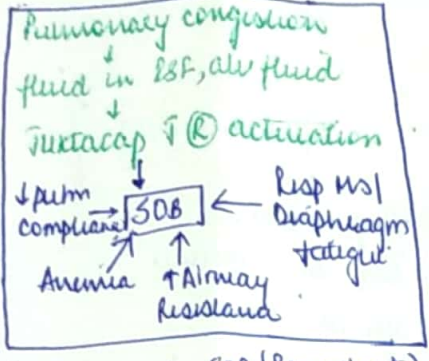 Pulmonary congestion
↓
fluid in ISF, alv fluid
↓
Juxtacap J Ⓡ activation
↓
↓ pulm compliance → SOB ← Resp Msl Diaphragm fatigue
Anemia ↑ Airway
Resistance